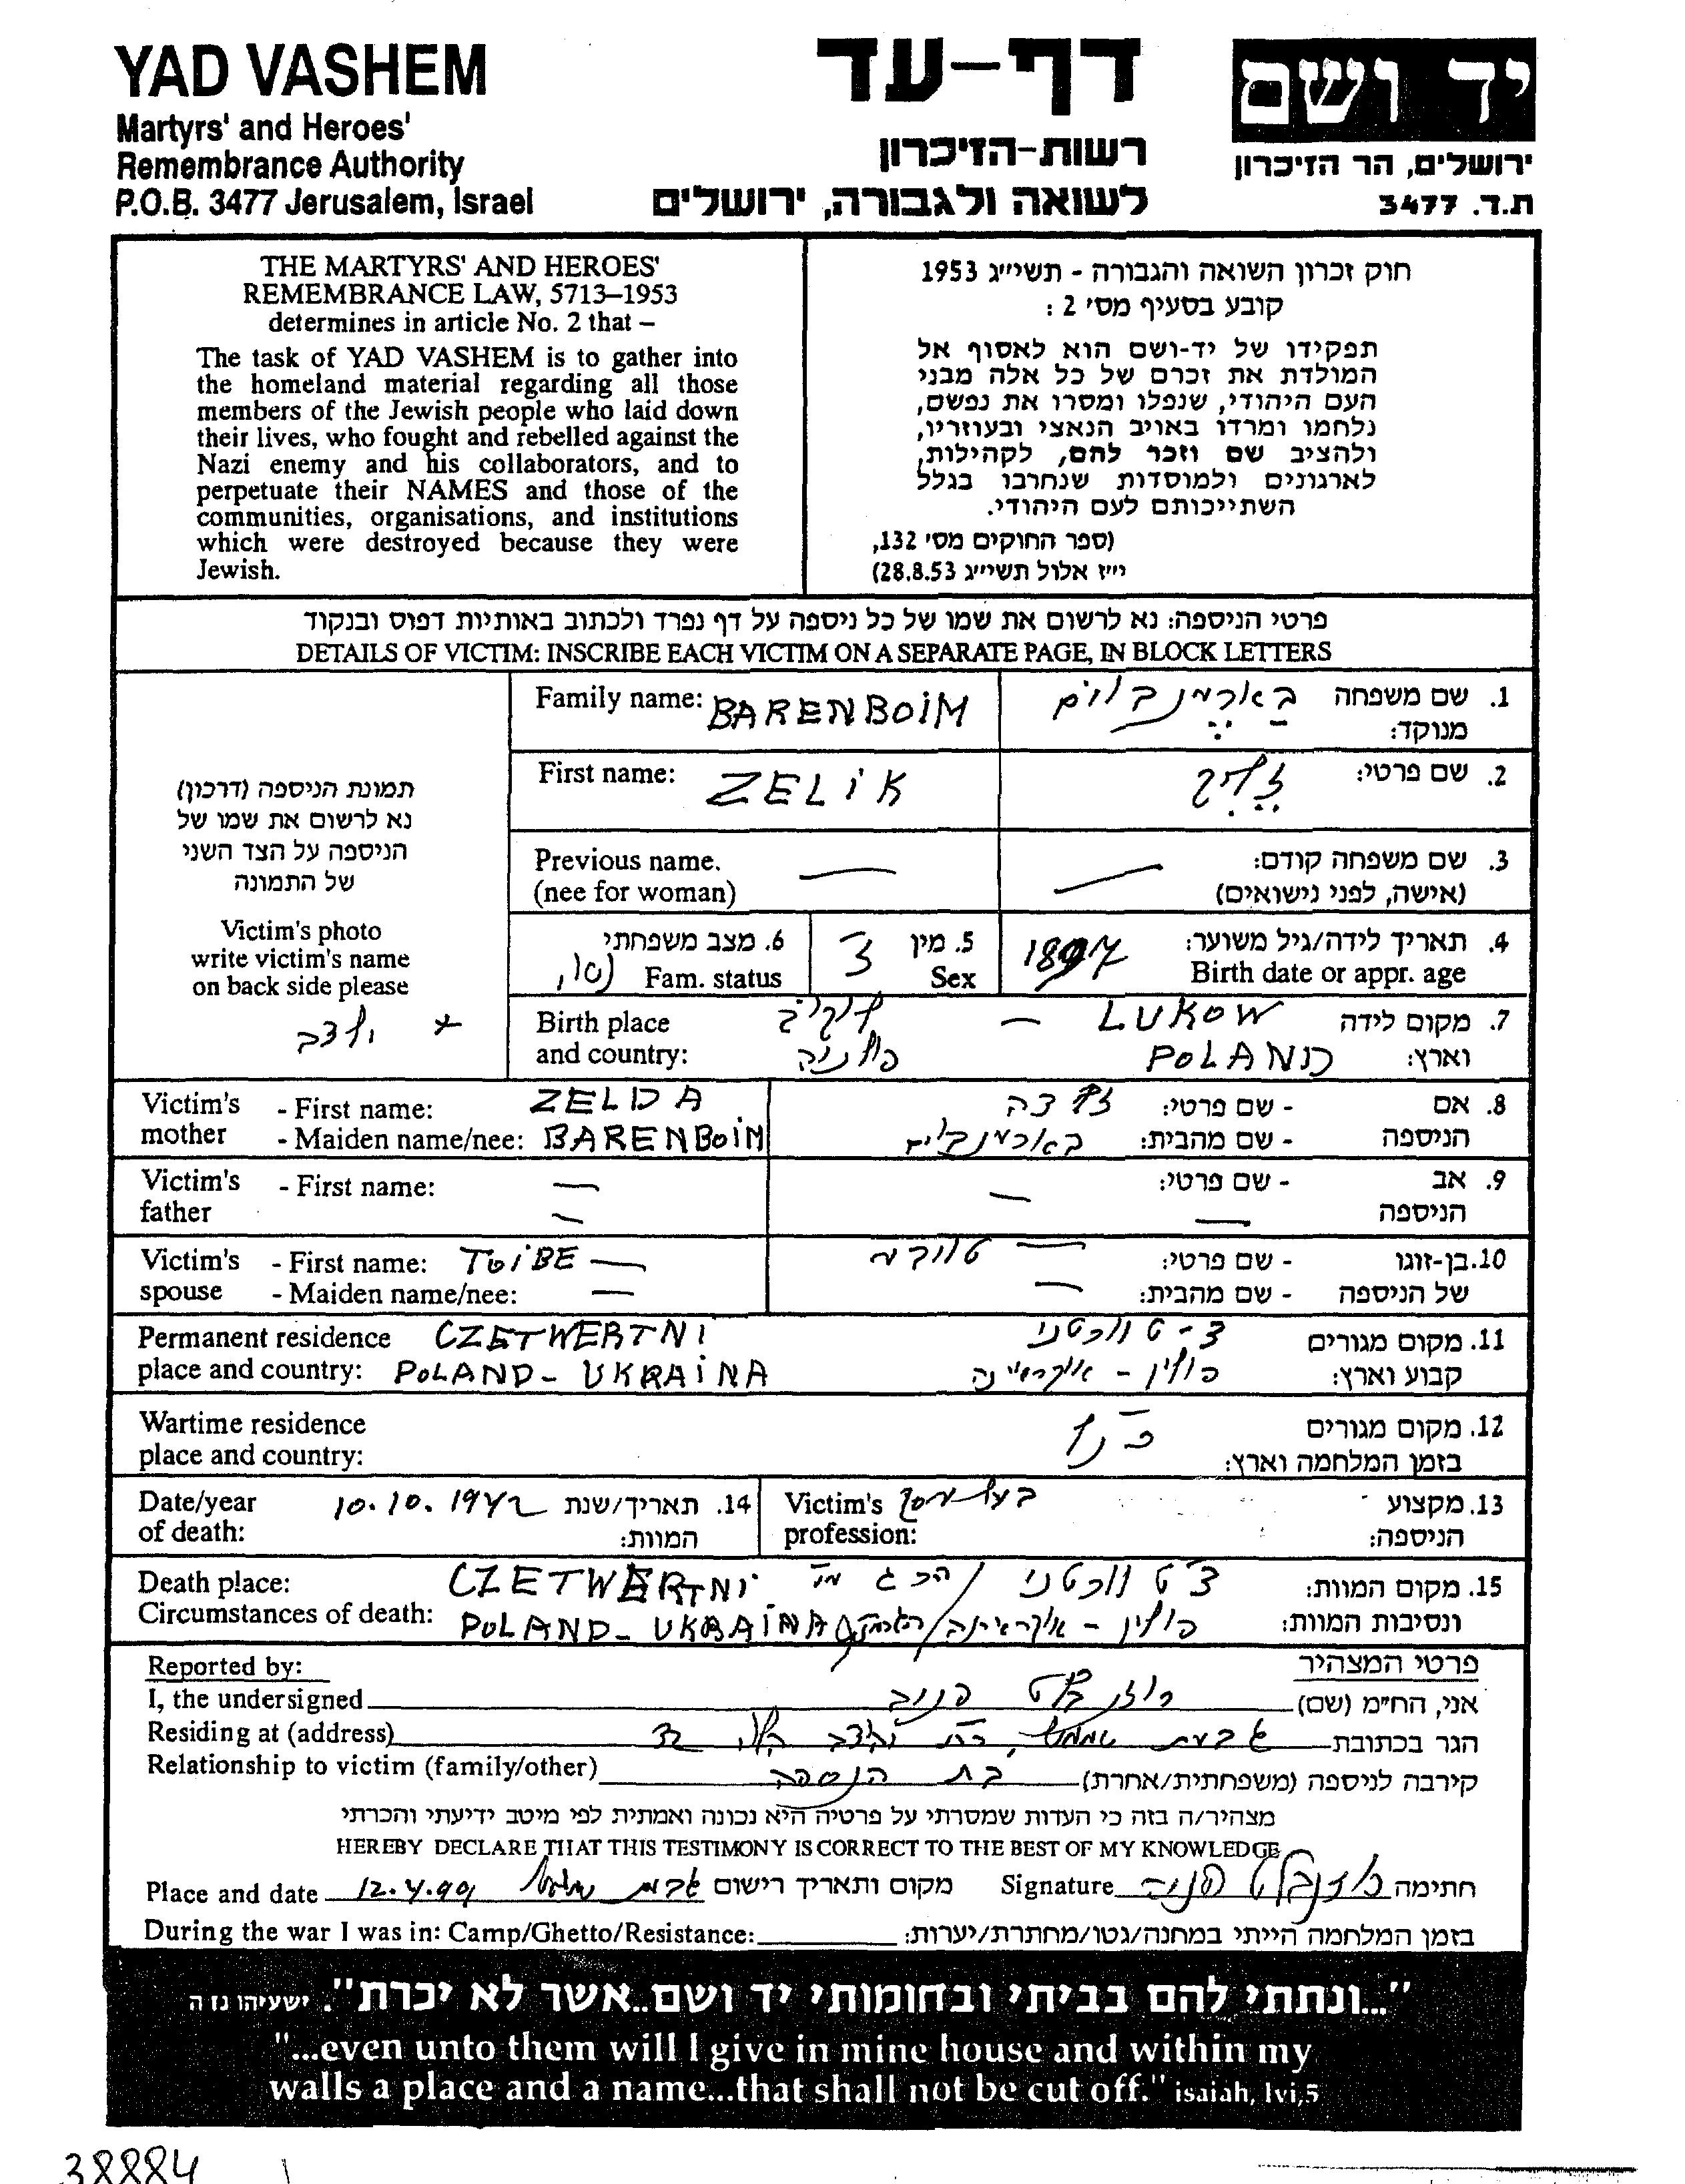 YAD VASHEM
Martyrs' and Heroes'
Remembrance Authority
P.O.B. 3477 Jerusalem, Israel
דף-עד
רשות-הזיכרון
לשואה ולגבורה, ירושלים
יד ושם
ירושלים, הר הזיכרון
ת.ד. 3477
THE MARTYRS' AND HEROES'
REMEMBRANCE LAW, 5713–1953
determines in article No. 2 that –
The task of YAD VASHEM is to gather into
the homeland material regarding all those
members of the Jewish people who laid down
their lives, who fought and rebelled against the
Nazi enemy and his collaborators, and to
perpetuate their NAMES and those of the
communities, organisations, and institutions
which were destroyed because they were
Jewish.
חוק זכרון השואה והגבורה - תשי״ג 1953
קובע בסעיף מס׳ 2 :
תפקידו של יד-ושם הוא לאסוף אל
המולדת את זכרם של כל אלה מבני
העם היהודי, שנפלו ומסרו את נפשם,
נלחמו ומרדו באויב הנאצי ובעוזריו,
ולהציב שם וזכר להם, לקהילות,
לארגונים ולמוסדות שנחרבו בגלל
השתייכותם לעם היהודי.
(ספר החוקים מס׳ 132,
י״ז אלול תשי״ג 28.8.53)
פרטי הניספה: נא לרשום את שמו של כל ניספה על דף נפרד ולכתוב באותיות דפוס ובנקוד
DETAILS OF VICTIM: INSCRIBE EACH VICTIM ON A SEPARATE PAGE, IN BLOCK LETTERS
תמונת הניספה (דרכון)
נא לרשום את שמו של
הניספה על הצד השני
של התמונה
Victim's photo
write victim's name
on back side please
Family name: BARENBOIM
בארענבוים
1. שם משפחה
מנוקד:
First name: ZELIK
זעליק
2. שם פרטי:
Previous name.
(nee for woman)
3. שם משפחה קודם:
(אישה, לפני נישואים)
6. מצב משפחתי
Fam. status
5. מין
Sex
ז
4. תאריך לידה/גיל משוער:
Birth date or appr. age
1897
Birth place
and country:
לוקוב — LUKOW
פולניה POLAND
7. מקום לידה
וארץ:
Victim's mother
- First name: ZELDA
- Maiden name/nee: BARENBOIM
זלדה
בארענבוים
8. אם הניספה
- שם פרטי:
- שם מהבית:
Victim's father
- First name: —
9. אב הניספה
- שם פרטי: —
Victim's spouse
- First name: TOIBE —
- Maiden name/nee: —
טויבע
10. בן-זוגו של הניספה
- שם פרטי:
- שם מהבית: —
Permanent residence CZETWERTNI
place and country: POLAND - UKRAINA
צ׳טוורטני
פולין - אוקראיינה
11. מקום מגורים
קבוע וארץ:
Wartime residence
place and country:
כנ״ל
12. מקום מגורים
בזמן המלחמה וארץ:
Date/year
of death:
10.10.1942
14. תאריך/שנת
המוות:
Victim's
profession:
13. מקצוע
הניספה:
Death place: CZETWERTNI
Circumstances of death: POLAND - UKRAINA
צ׳טוורטני
פולין - אוקראינה
15. מקום המוות:
ונסיבות המוות:
Reported by:
פרטי המצהיר
I, the undersigned
רוזנבלט פנינה
אני, הח״מ (שם)
Residing at (address)
גבעת שמואל
הגר בכתובת
Relationship to victim (family/other)
בת הנספה
קירבה לניספה (משפחתית/אחרת)
מצהיר/ה בזה כי העדות שמסרתי על פרטיה היא נכונה ואמתית לפי מיטב ידיעתי והכרתי
HEREBY DECLARE THAT THIS TESTIMONY IS CORRECT TO THE BEST OF MY KNOWLEDGE
Place and date 12.4.99 גבעת שמואל מקום ותאריך רישום
Signature רוזנבלט פנינה חתימה
During the war I was in: Camp/Ghetto/Resistance:
בזמן המלחמה הייתי במחנה/גטו/מחתרת/יערות:
"...ונתתי להם בביתי ובחומותי יד ושם..אשר לא יכרת". ישעיהו נו ה
"...even unto them will I give in mine house and within my
walls a place and a name...that shall not be cut off." isaiah, lvi,5
38884